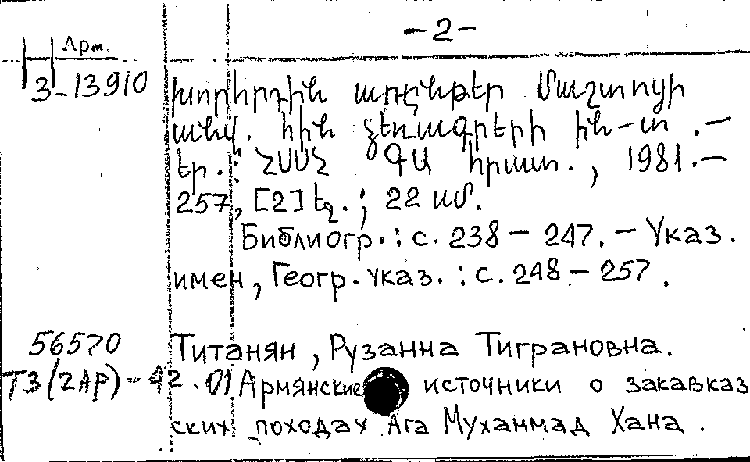 -2-
Арм.
З-13910
խորհրդին առընթեր Մաշտոցի
անվ. հին ձեռագրերի ին-տ .–
Եր.: ՀՍՍՀ ԳԱ հրատ., 1981.–
257, [2] եջ.; 22 սմ.
Библиогр.: с. 238 – 247. – Указ.
имен, Геогр. указ.: с. 248 – 257.
56570
Титанян, Рузанна Тиграновна.
Т3(2Ар)-42 .01 Армянские источники о закавказ
ских походах Ага Муханмад Хана .